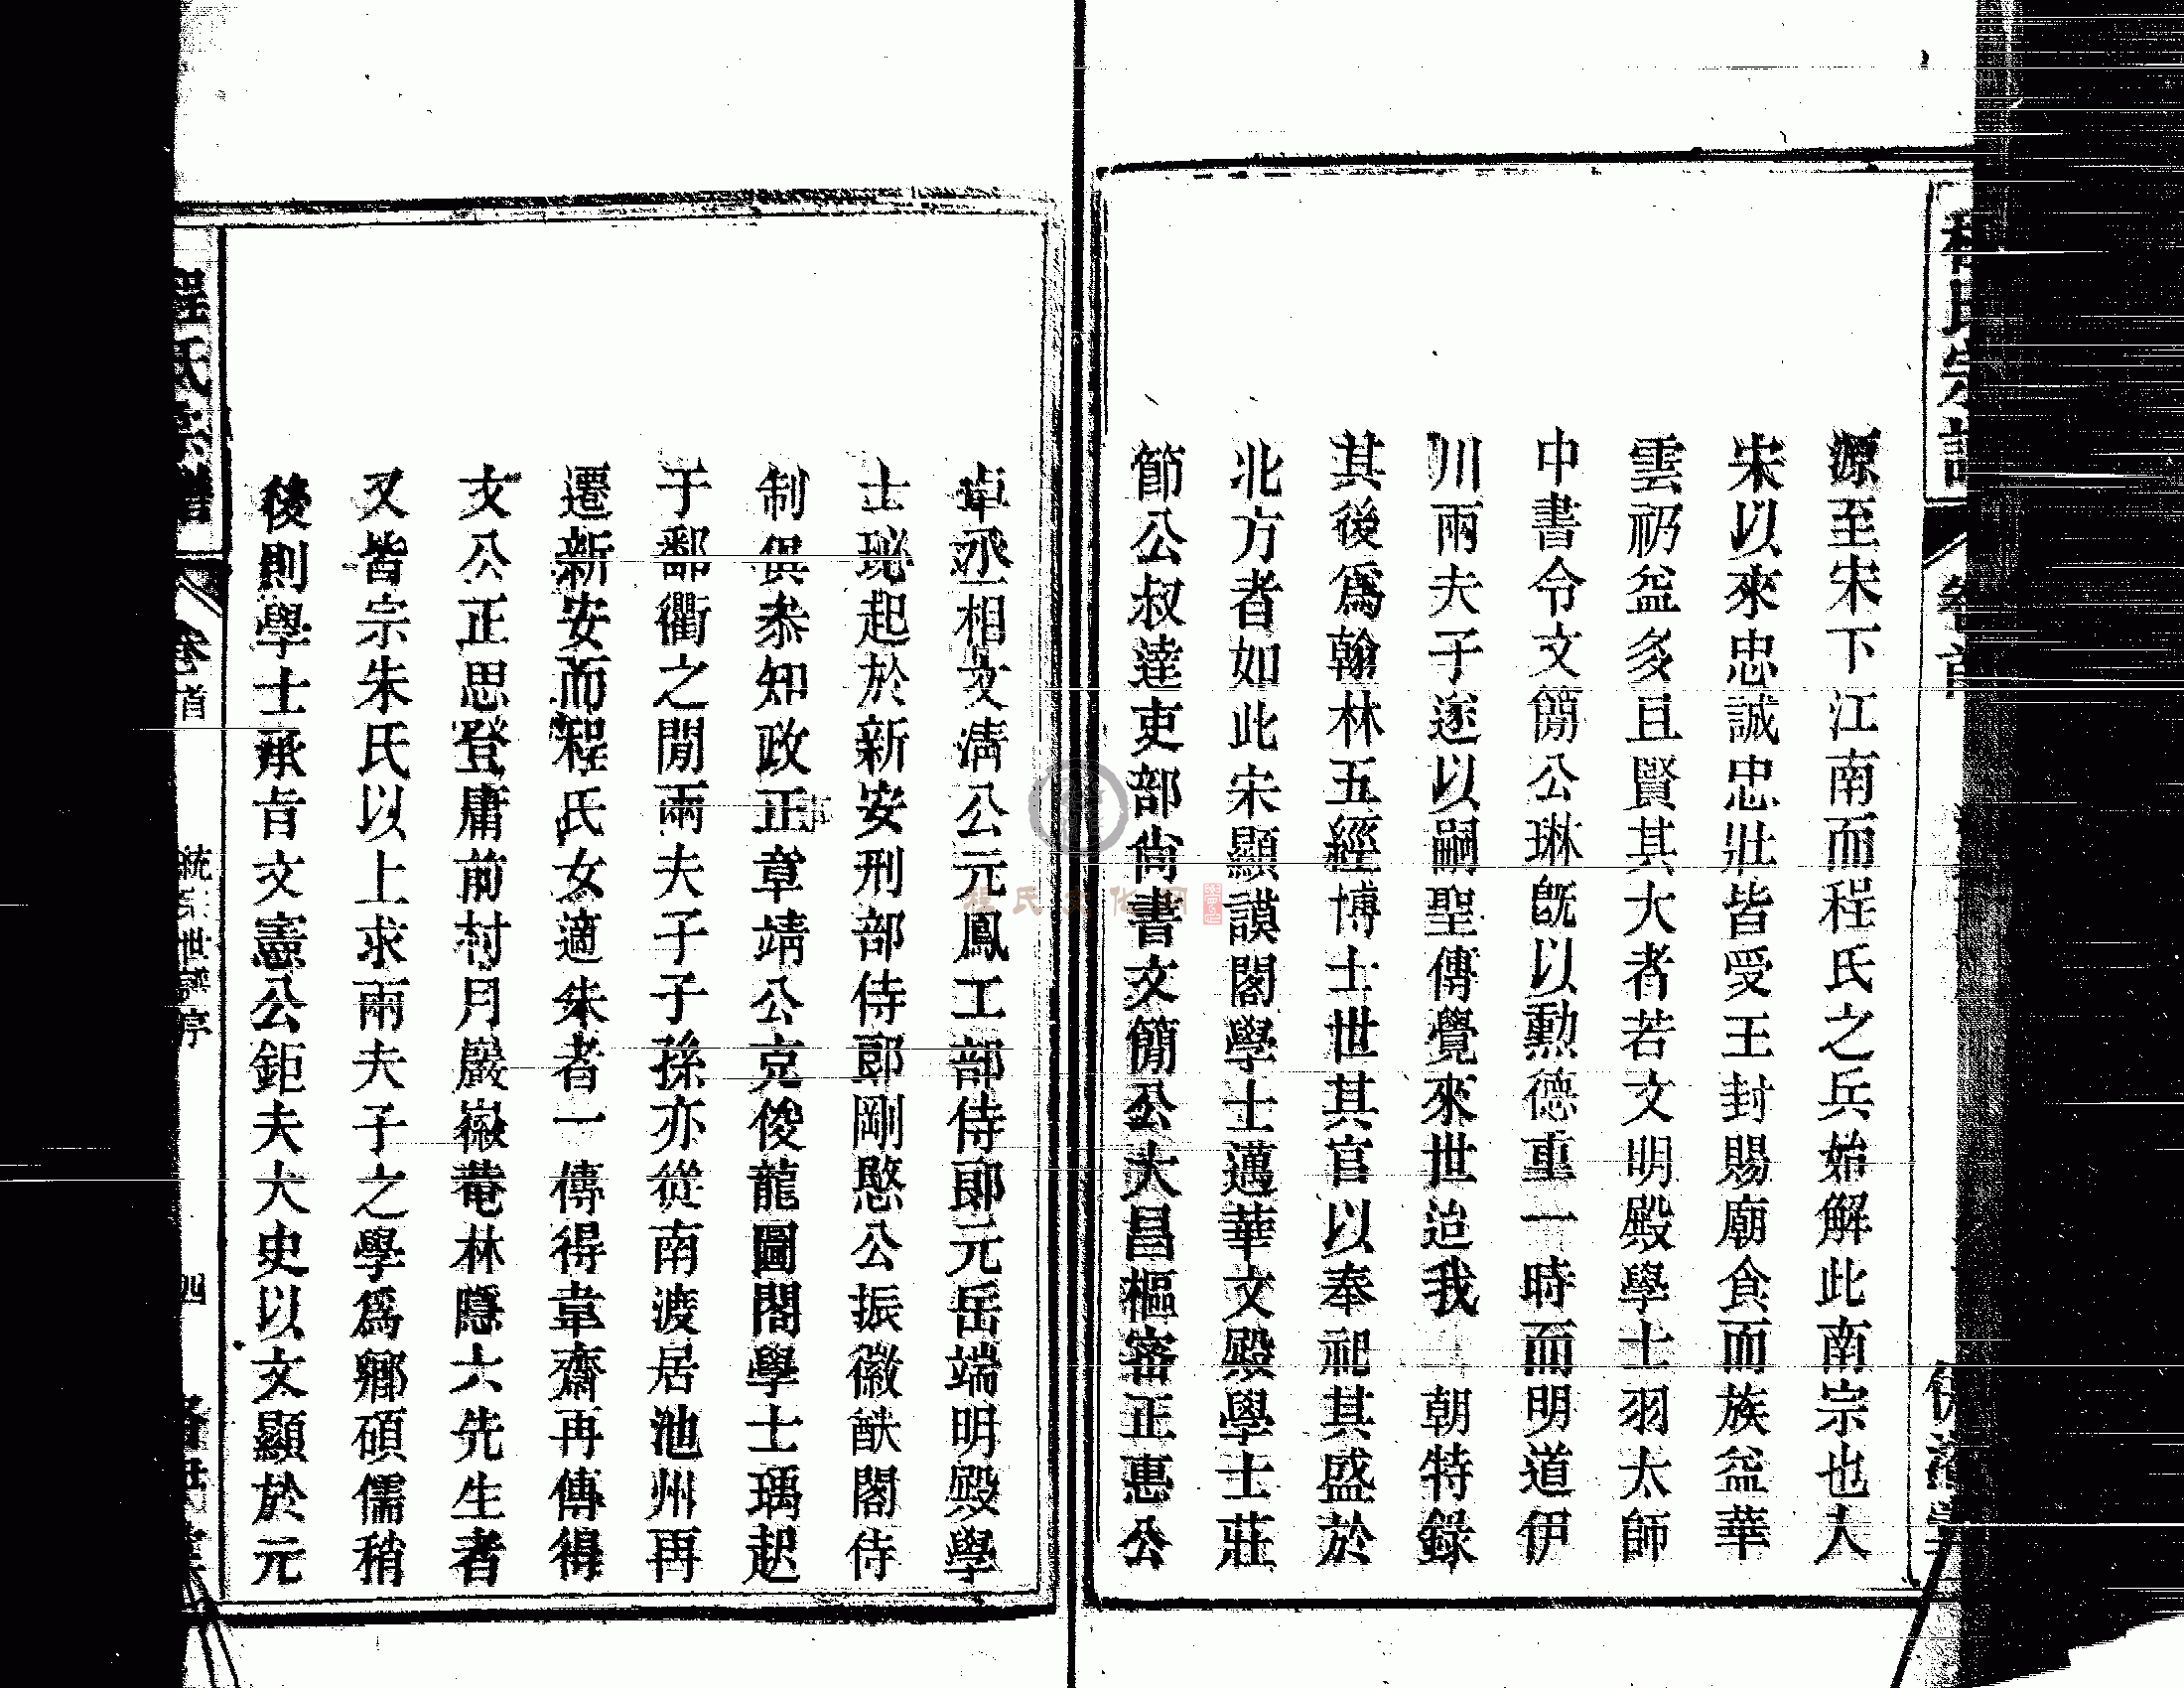 源至宋下江南而程氏之兵始解此南宗也人
宋以來忠誠忠壯皆受王封賜廟食而族益華
雲礽益多且賢其大者若文明殿學士羽太師
中書令文簡公琳旣以勳德重一時而明道伊
川兩夫子遂以嗣聖傳覺來世迨我 朝特錄
其後爲翰林五經博士世其官以奉祀其盛於
北方者如此宋顯謨閣學士邁華文殿學士莊
節公叔達吏部尙書文簡公大昌樞密正惠公
卓丞相文淸公元鳳工部侍郎元岳端明殿學
士珌起於新安刑部侍郎剛愍公振徽猷閣侍
制俱叅知政事正章靖公克俊龍圖閣學士瑀起
于鄱衢之閒兩夫子子孫亦從南渡居池州再
遷新安而程氏女適朱者一傳得韋齋再傳得
文公正思登庸前村月巖徽菴林隱六先生者
又皆宗朱氏以上求兩夫子之學爲鄉碩儒稍
後則學士承旨文憲公鉅夫大史以文顯於元
程氏宗譜
卷首
統宗世譜序
四
程氏文化网